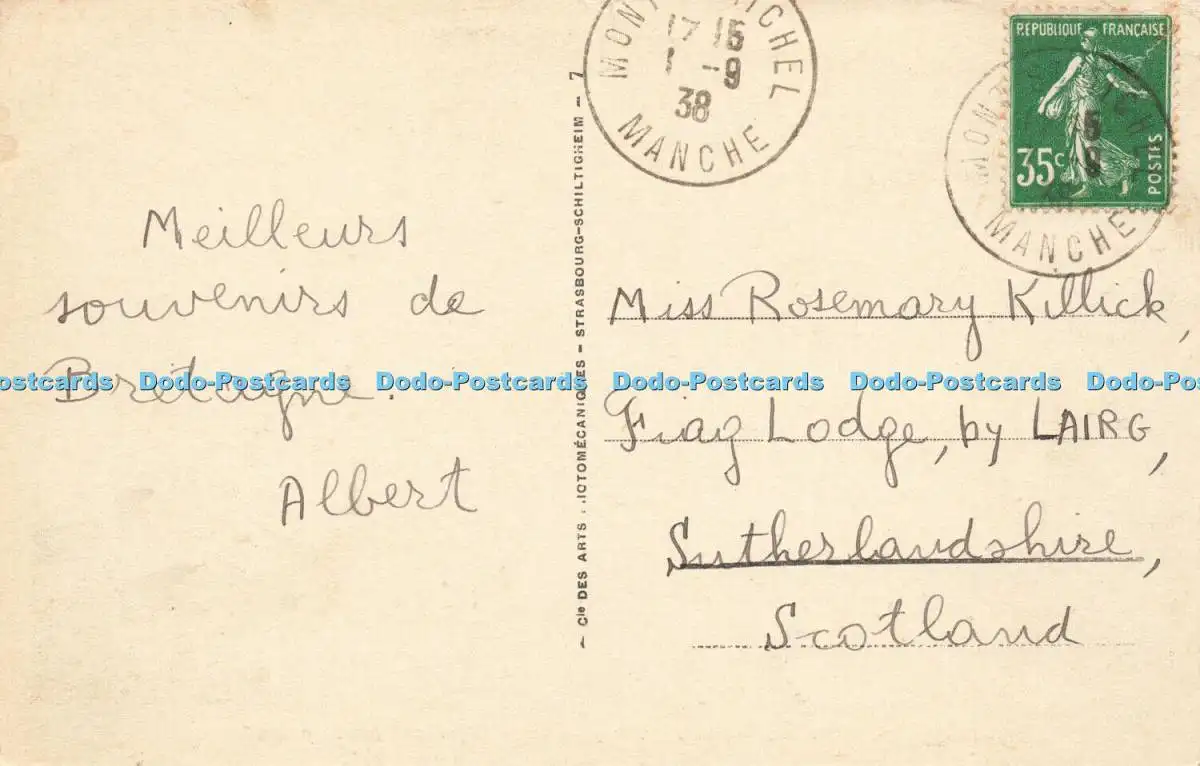 Meilleurs
souvenirs de
Bretagne.
Albert
- Cie DES ARTS PHOTOMÉCANIQUES - STRASBOURG-SCHILTIGHEIM - 7
MONT MICHEL
17 15
1 - 9
38
MANCHE
REPUBLIQUE FRANÇAISE
35c
POSTES
MANCHE
Miss Rosemary Killick,
Fiag Lodge, by LAIRG,
Sutherlandshire,
Scotland
Dodo-Postcards Dodo-Postcards Dodo-Postcards Dodo-Postcards Dodo-Postcards